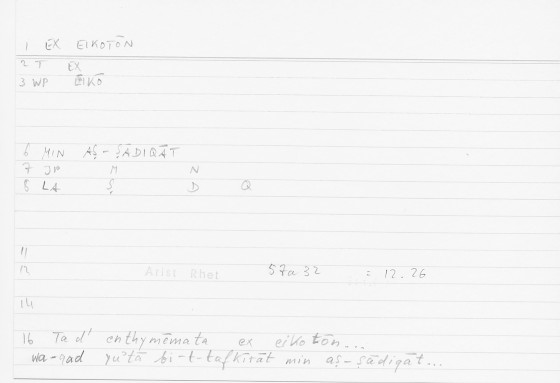 1 EX EIKOTŌN
2 T EX
3 WP EIKŌ
6 MIN AṢ-ṢĀDIQĀT
7 JP M N
8 LA Ṣ D Q
11
12 Arist Rhet 57a32 = 12.26
14
16 Ta d' enthymēmata ex eikotōn...
wa-qad yu'tā bi-t-tafkīrāt min aṣ-ṣādiqāt...